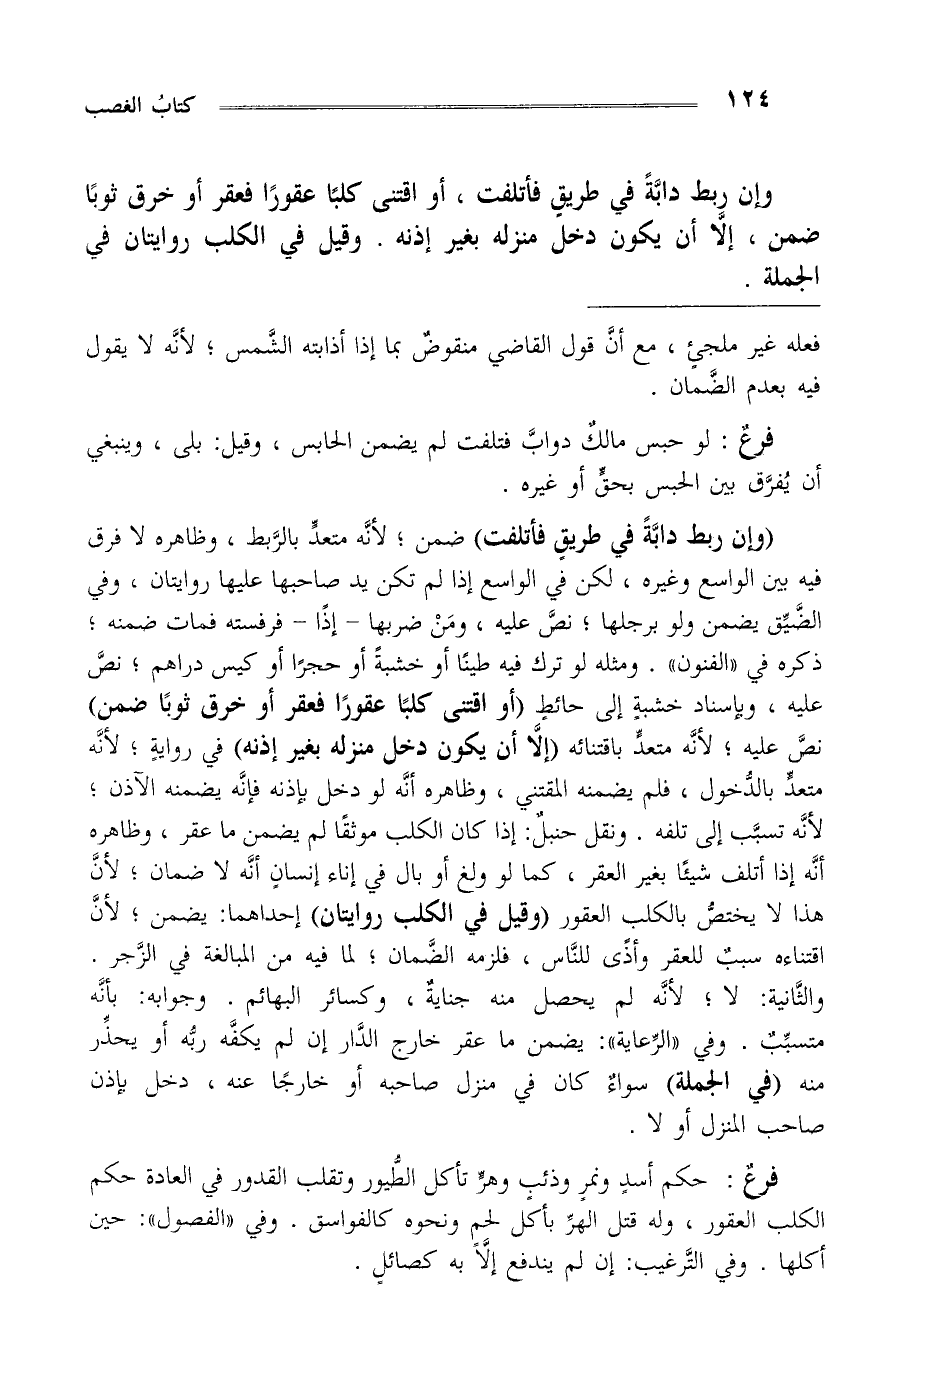 ١٢٤ كتابُ الغصب
وإن ربط دابَّةً في طريقٍ فأتلفت ، أو اقتنى كلبًا عقورًا فعقر أو خرق ثوبًا
ضمن ، إلَّا أن يكون دخل منزله بغير إذنه . وقيل في الكلب روايتان في
الجملة .
فعله غير ملجئٍ ، مع أنَّ قول القاضي منقوضٌ بما إذا أذابته الشَّمس ؛ لأنَّه لا يقول
فيه بعدم الضَّمان .
فرعٌ : لو حبس مالكٌ دوابَّ فتلفت لم يضمن الحابس ، وقيل: بلى ، وينبغي
أن يُفرَّق بين الحبس بحقٍّ أو غيره .
(وإن ربط دابَّةً في طريقٍ فأتلفت) ضمن ؛ لأنَّه متعدٍّ بالرَّبط ، وظاهره لا فرق
فيه بين الواسع وغيره ، لكن في الواسع إذا لم تكن يد صاحبها عليها روايتان ، وفي
الضَّيِّق يضمن ولو برجلها ؛ نصَّ عليه ، ومَنْ ضربها – إذًا – فرفسته فمات ضمنه ؛
ذكره في «الفنون» . ومثله لو ترك فيه طينًا أو خشبةً أو حجرًا أو كيس دراهم ؛ نصَّ
عليه ، وبإسناد خشبةٍ إلى حائطٍ (أو اقتنى كلبًا عقورًا فعقر أو خرق ثوبًا ضمن)
نصَّ عليه ؛ لأنَّه متعدٍّ باقتنائه (إلَّا أن يكون دخل منزله بغير إذنه) في روايةٍ ؛ لأنَّه
متعدٍّ بالدُّخول ، فلم يضمنه المقتني ، وظاهره أنَّه لو دخل بإذنه فإنَّه يضمنه الآذن ؛
لأنَّه تسبَّب إلى تلفه . ونقل حنبلٌ: إذا كان الكلب موثقًا لم يضمن ما عقر ، وظاهره
أنَّه إذا أتلف شيئًا بغير العقر ، كما لو ولغ أو بال في إناء إنسانٍ أنَّه لا ضمان ؛ لأنَّ
هذا لا يختصُّ بالكلب العقور (وقيل في الكلب روايتان) إحداهما: يضمن ؛ لأنَّ
اقتناءه سببٌ للعقر وأذًى للنَّاس ، فلزمه الضَّمان ؛ لما فيه من المبالغة في الزَّجر .
والثَّانية: لا ؛ لأنَّه لم يحصل منه جنايةٌ ، وكسائر البهائم . وجوابه: بأنَّه
متسبِّبٌ . وفي «الرِّعاية»: يضمن ما عقر خارج الدَّار إن لم يكفَّه ربُّه أو يحذِّر
منه (في الجملة) سواءٌ كان في منزل صاحبه أو خارجًا عنه ، دخل بإذن
صاحب المنزل أو لا .
فرعٌ : حكم أسدٍ ونمرٍ وذئبٍ وهرٍّ تأكل الطُّيور وتقلب القدور في العادة حكم
الكلب العقور ، وله قتل الهرِّ بأكل لحم ونحوه كالفواسق . وفي «الفصول»: حين
أكلها . وفي التَّرغيب: إن لم يندفع إلَّا به كصائلٍ .